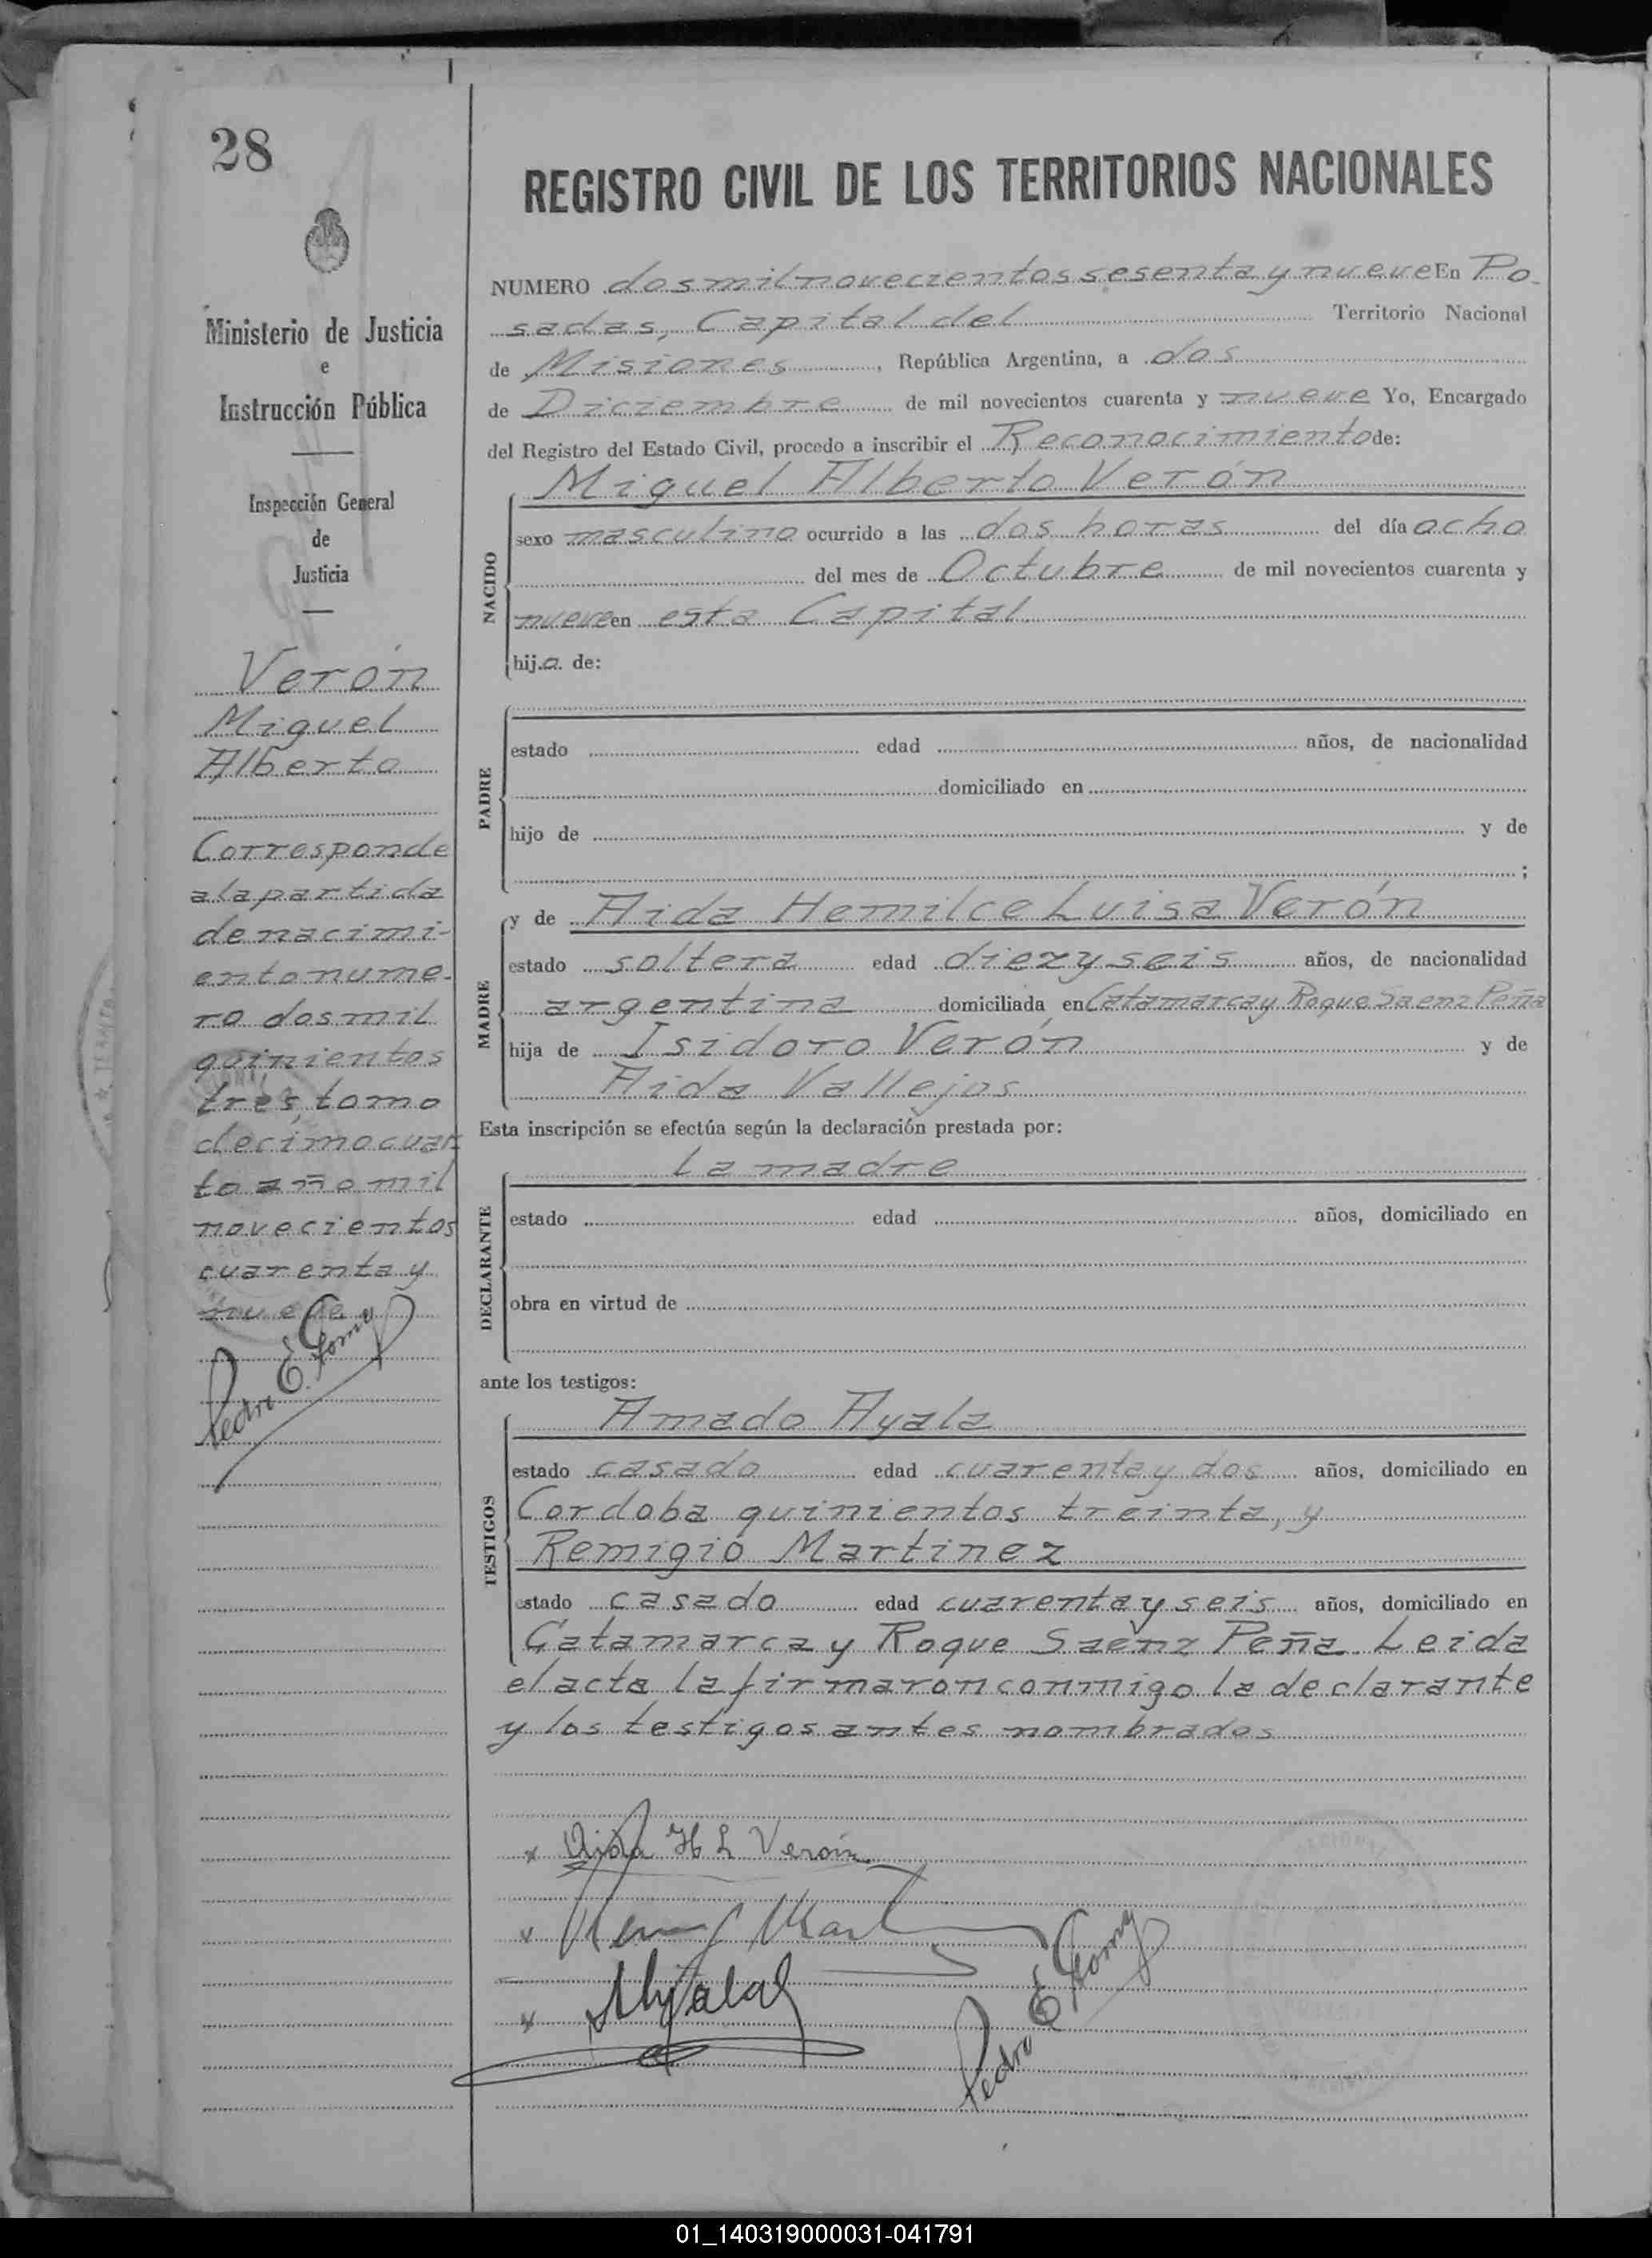 28
REGISTRO CIVIL DE LOS TERRITORIOS NACIONALES
Ministerio de Justicia
e
Instrucción Pública
Inspección General
de
Justicia
Verón
Miguel
Alberto
Corresponde
a la partida
de nacimi-
ento nume-
ro dos mil
quinientos
tres, tomo
decimo cuar
to año mil
novecientos
cuarenta y
nueve
Pedro E. Gomez
NUMERO dos mil novecientos sesenta y nueve En Po-
sadas, Capital del Territorio Nacional
de Misiones, República Argentina, a dos
de Diciembre de mil novecientos cuarenta y nueve Yo, Encargado
del Registro del Estado Civil, procedo a inscribir el Reconocimiento de:
Miguel Alberto Verón
NACIDO
sexo masculino ocurrido a las dos horas del día ocho
del mes de Octubre de mil novecientos cuarenta y
nueve en esta Capital
hij.o. de:
PADRE
estado edad años, de nacionalidad
domiciliado en
hijo de y de
;
MADRE
y de Aida Hemilce Luisa Verón
estado soltera edad diez y seis años, de nacionalidad
argentina domiciliada en Catamarca y Roque Saenz Peña
hija de Isidoro Verón y de
Aida Vallejos
Esta inscripción se efectúa según la declaración prestada por:
La madre
DECLARANTE
estado edad años, domiciliado en
obra en virtud de
ante los testigos:
TESTIGOS
Amado Ayala
estado casado edad cuarenta y dos años, domiciliado en
Cordoba quinientos treinta, y
Remigio Martinez
estado casado edad cuarenta y seis años, domiciliado en
Catamarca y Roque Saenz Peña. Leida
el acta la firmaron conmigo la declarante
y los testigos antes nombrados
x Aida H L Verón
Pedro E Gomez
01_140319000031-041791